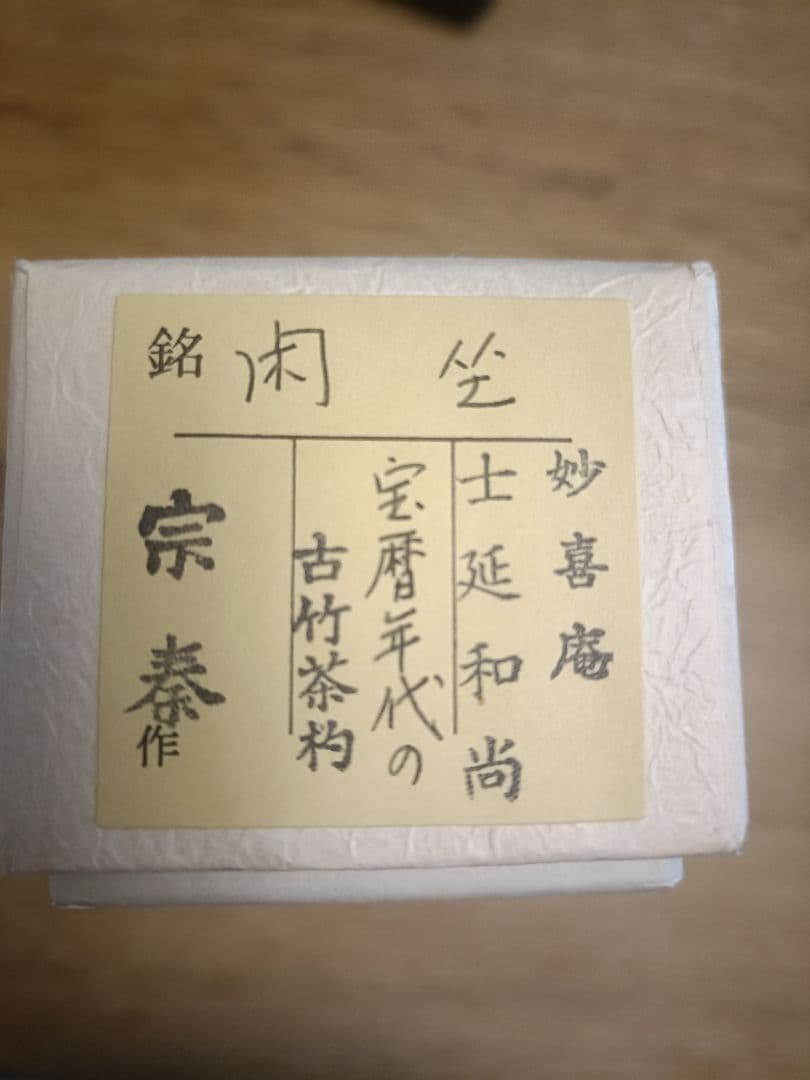 銘 閑坐
妙喜庵
士延和尚
宝暦年代の
古竹茶杓
宗泰作